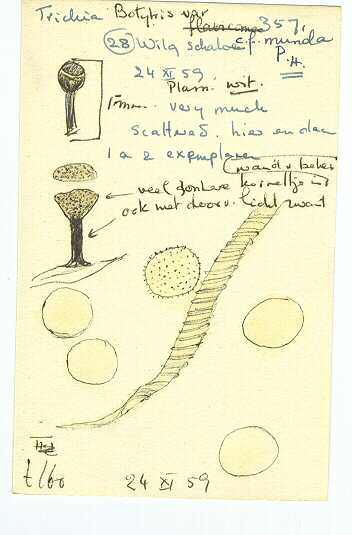 Trichia Botytris var
flavicoma 357.
28 Wilg schalve c.f. munda
P.H.
24 XI 59.
Plasm. wit.
1 mm. very much
scattered. hier en daar
1 a 2 exemplaren
wand v beker
veel donkere korreltjes in
ook met doorv. licht zwart
t/60
24 XI 59